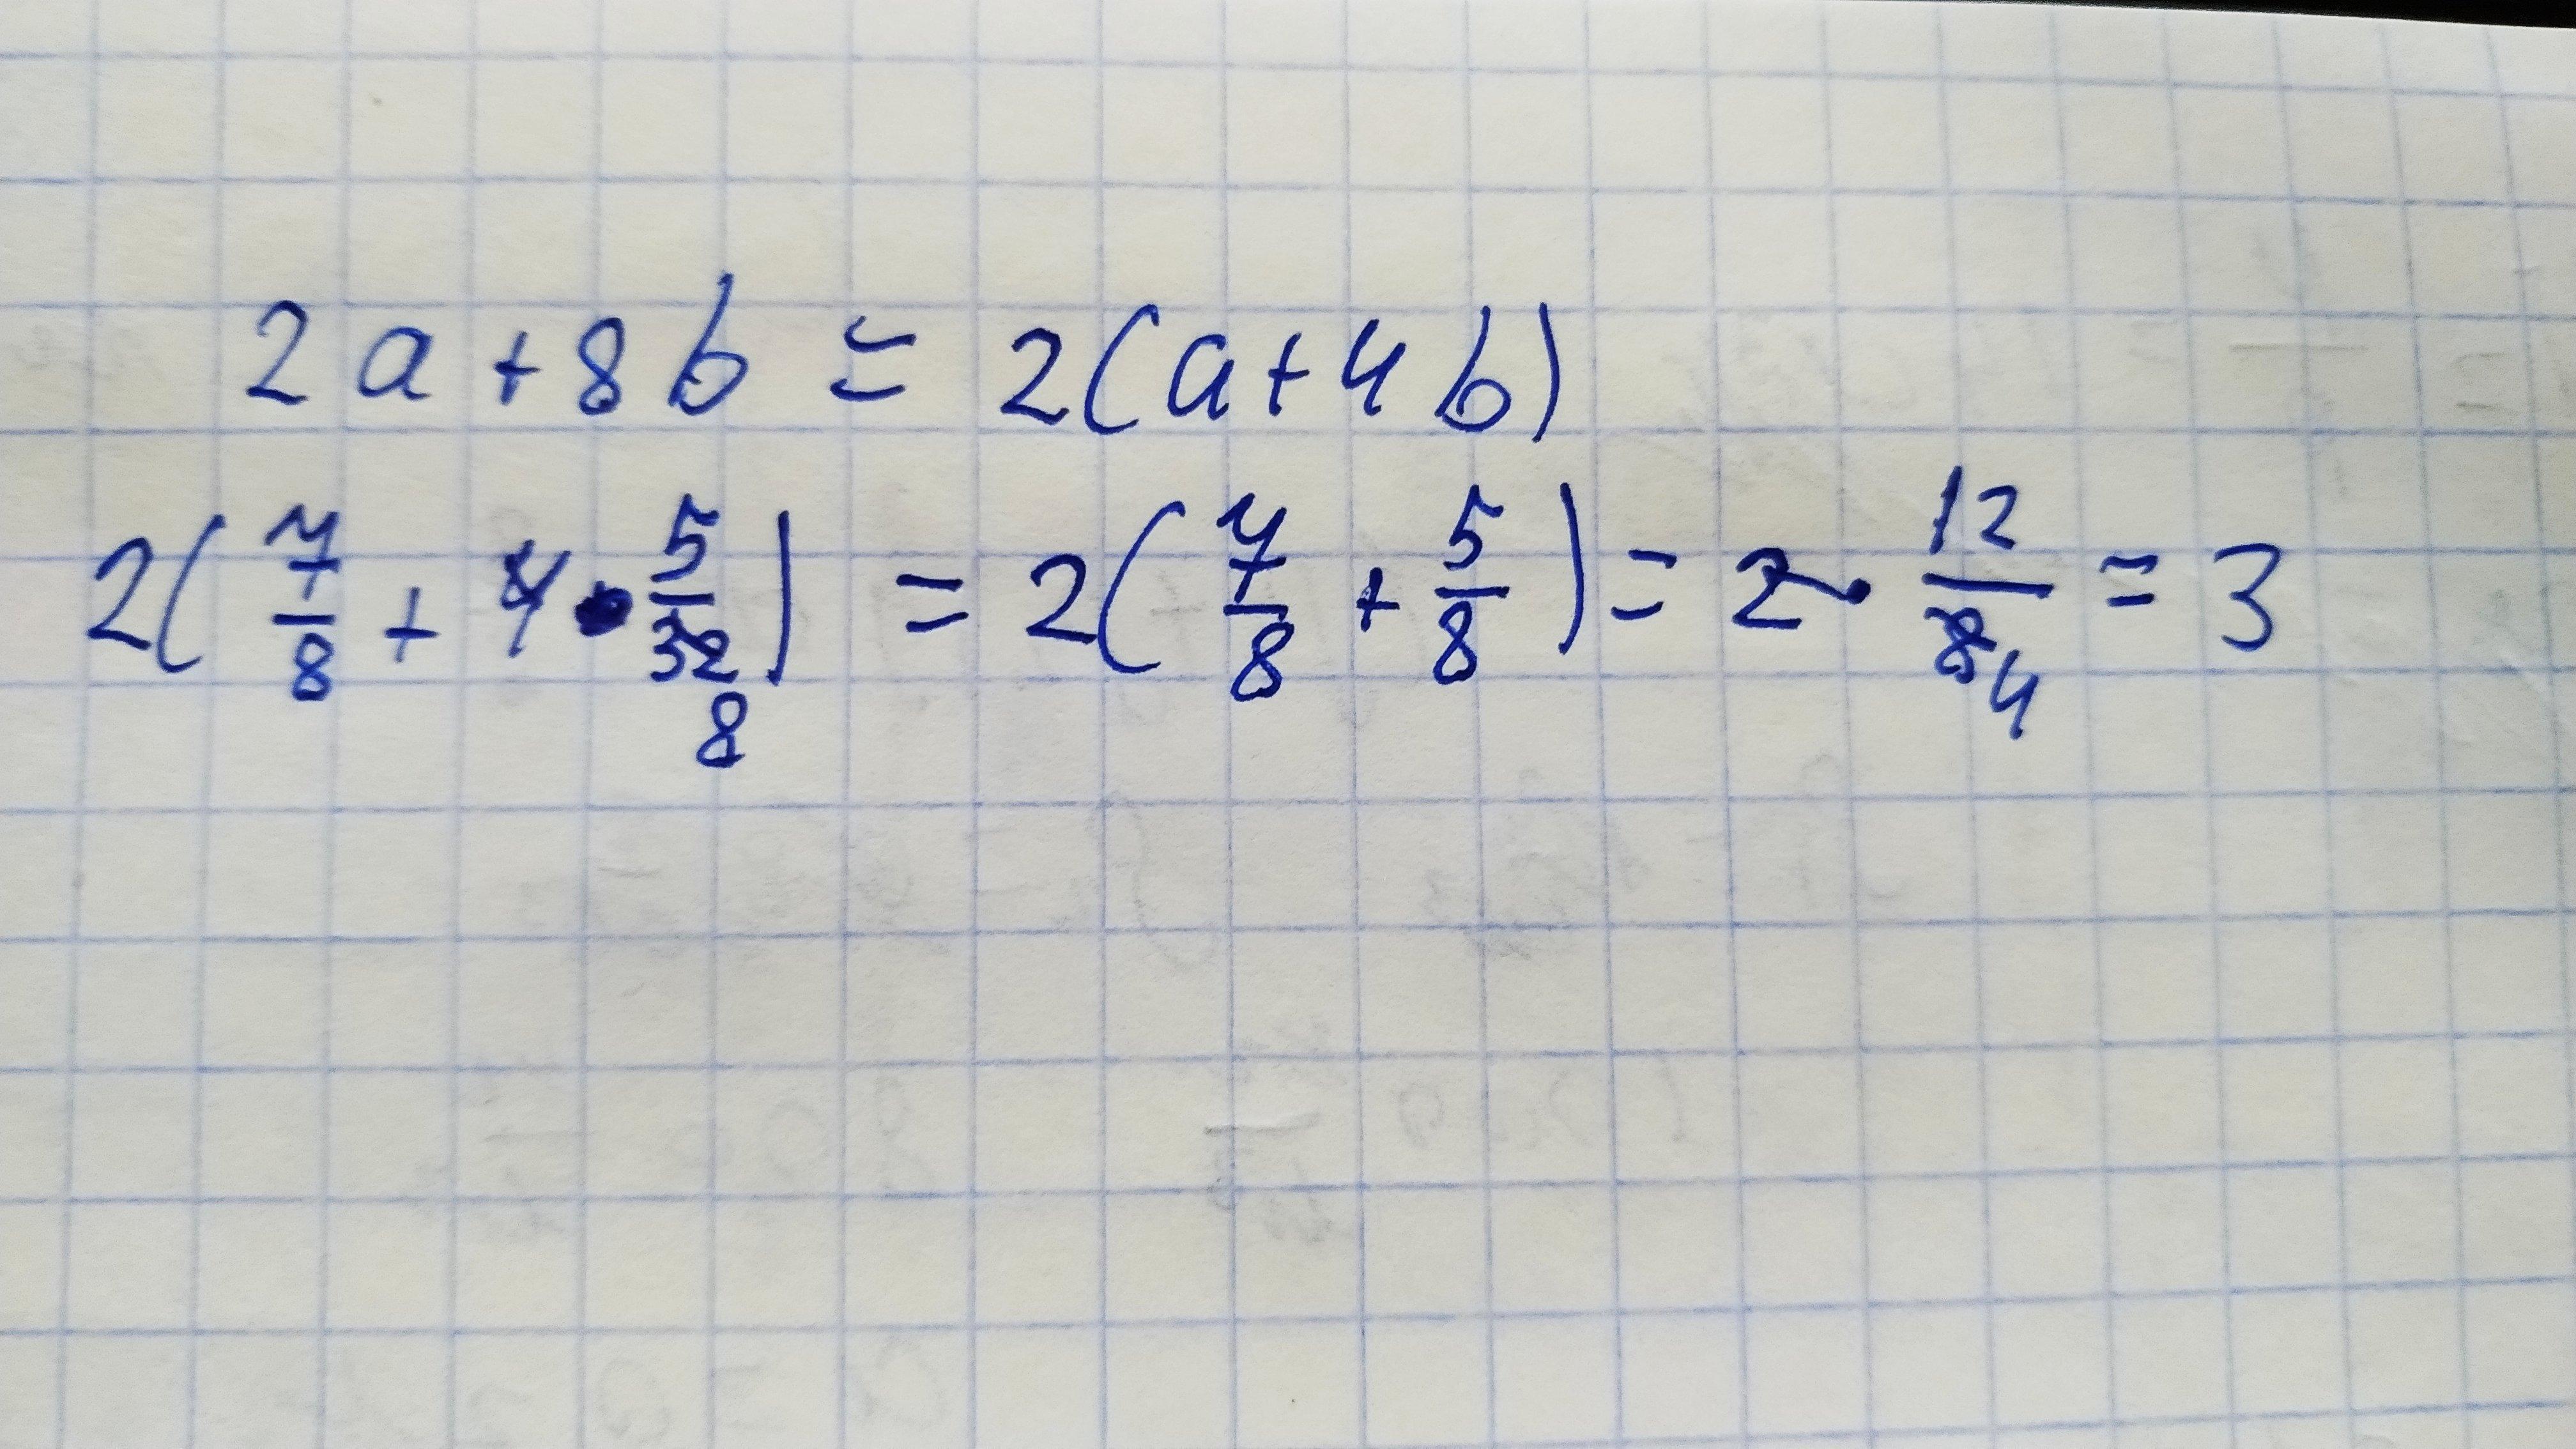 2a+8b = 2(a+4b)
2(7/8 + 4·5/32 8) = 2(7/8 + 5/8) = 2·12/8 4 = 3